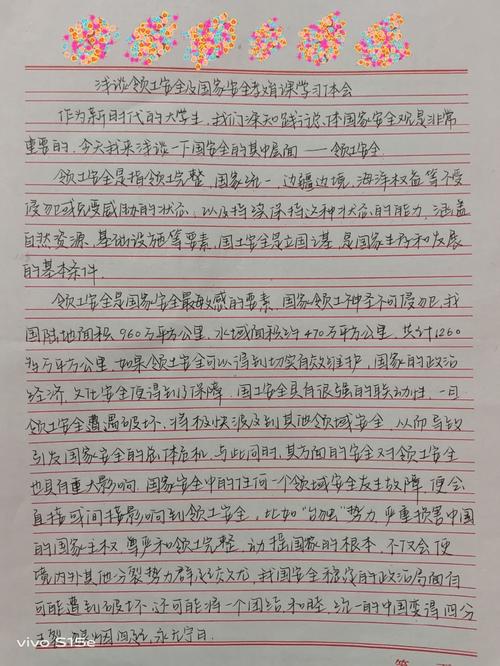 浅谈领土安全及国家安全教育课学习体会
作为新时代的大学生，我们深知践行总体国家安全观是非常
重要的，今天我来浅谈一下国安全的其中层面——领土安全
领土安全是指领土完整，国家统一，边疆边境，海洋权益等不受
侵犯或免受威胁的状态，以及持续保持这种状态的能力，涵盖
自然资源、基础设施等要素，国土安全是立国之基，是国家生存和发展
的基本条件
领土安全是国家安全最敏感的要素，国家领土神圣不可侵犯，我
国陆地面积960万平方公里，水域面积约470万平方公里，共计1260
万平方公里，如果领土安全可以得到切实有效维护，国家的政治
经济，文化安全便得到了保障，国土安全具有很强的联动性，一旦
领土安全遭遇破坏，将极快波及到其他领域安全，从而导致
引发国家安全的总体危机，与此同时，其方面的安全对领土安全
也具有重大影响，国家安全中的任何一个领域安全发生故障，便会
直接或间接影响到领土安全，比如“台独”势力，严重损害中国
的国家主权，尊严和领土完整，动摇国家的根本，不仅会使
境内外其他分裂势力群起效尤，我国安全稳定的政治局面有
可能遭到破坏，还可能将一个团结，和睦，统一的中国变得四分
永无宁日
vivo S15e